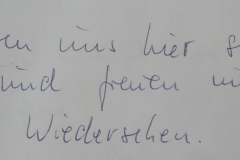 en uns hier s
und freuen un
Wiedersehen.